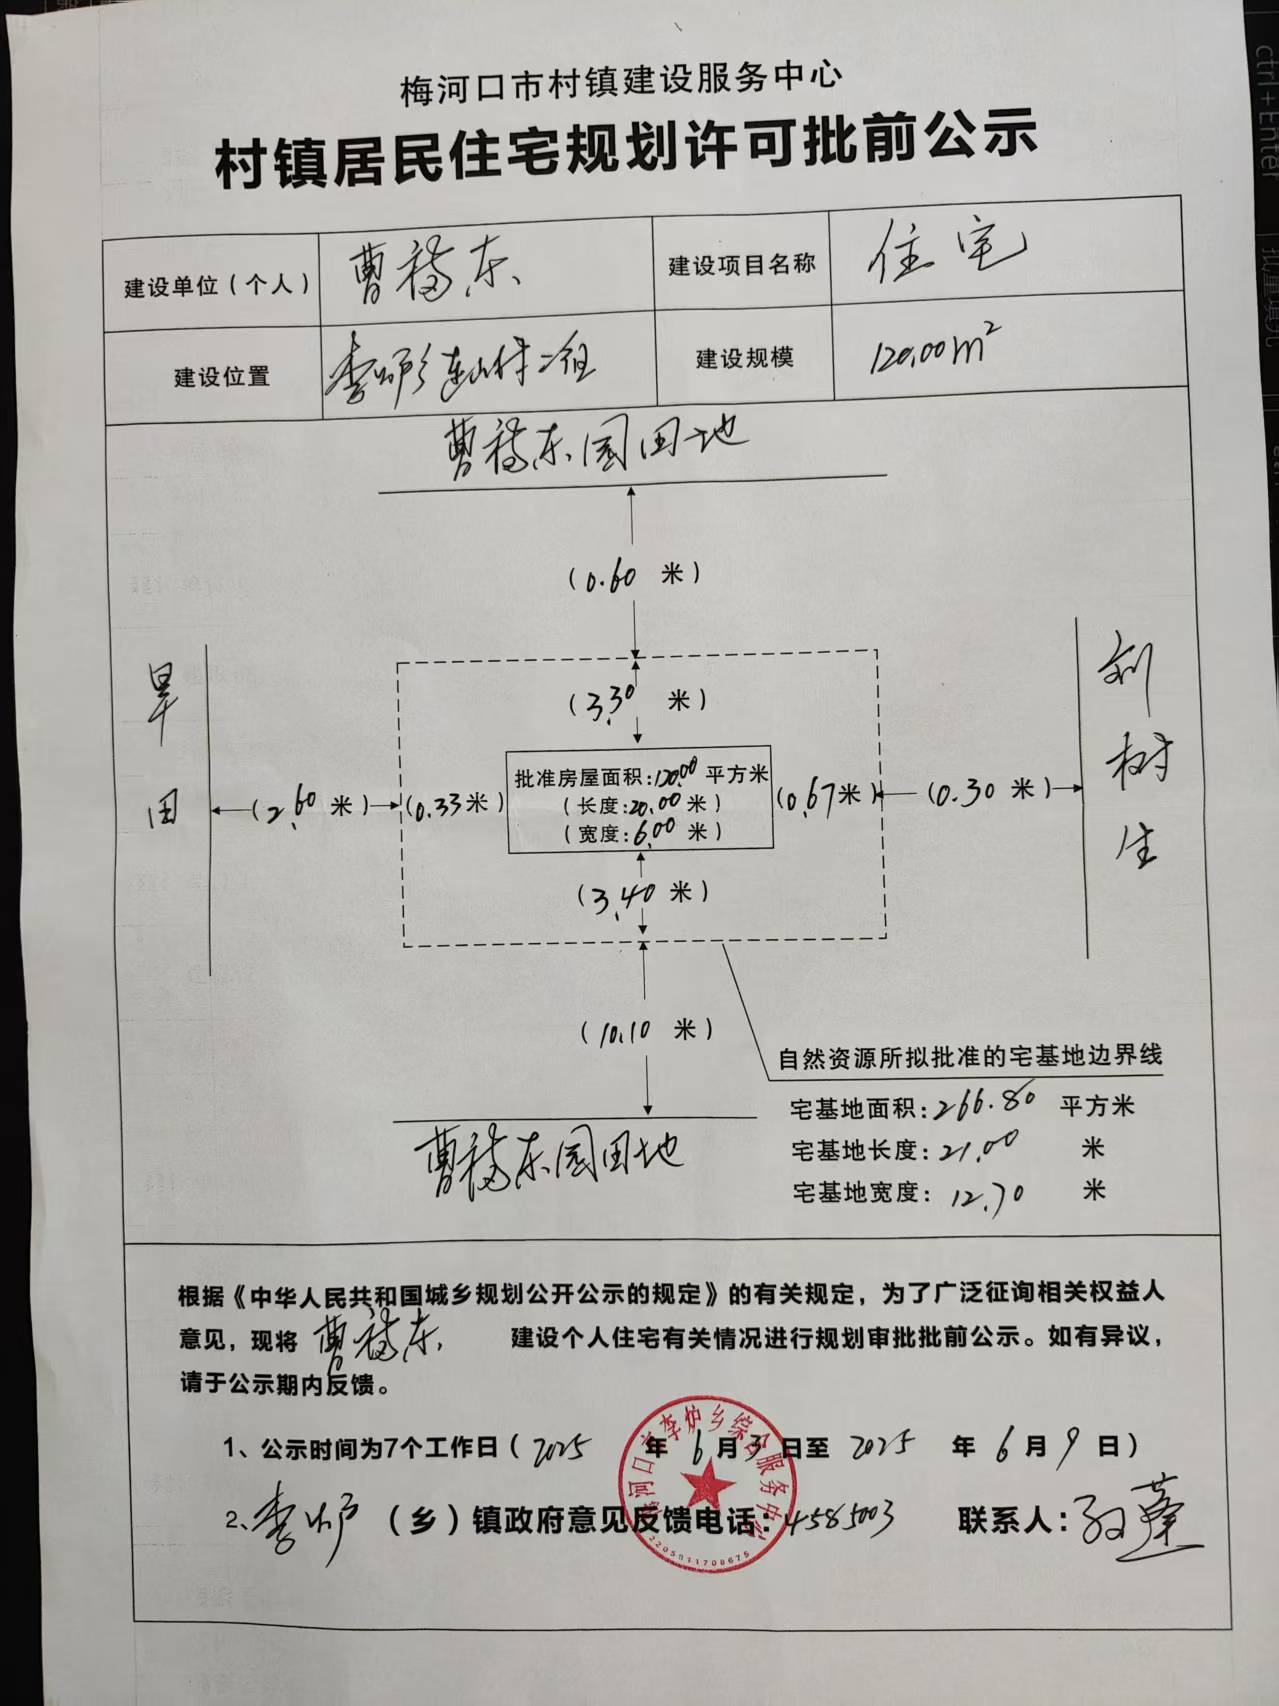 梅河口市村镇建设服务中心
村镇居民住宅规划许可批前公示
建设单位(个人) 曹福东 建设项目名称 住宅
建设位置 李炉乡连山村二组 建设规模 120.00m²
曹福东园田地
(0.60 米)
(3.30 米)
旱田
刘树生
批准房屋面积:120.00平方米
(长度:20.00米)
(宽度:6.00米)
(2.60米) (0.33米) (0.67米) (0.30米)
(3.40米)
(10.10 米)
曹福东园田地
自然资源所拟批准的宅基地边界线
宅基地面积:266.80 平方米
宅基地长度:21.00 米
宅基地宽度:12.70 米
根据《中华人民共和国城乡规划公开公示的规定》的有关规定，为了广泛征询相关权益人
意见，现将 曹福东 建设个人住宅有关情况进行规划审批批前公示。如有异议，
请于公示期内反馈。
1、公示时间为7个工作日(2025 年 6月3日至 2025 年 6月9日)
2、李炉 (乡)镇政府意见反馈电话:4585003 联系人:
梅河口市李炉乡综合服务中心
2205811700675
ctrl+Enter